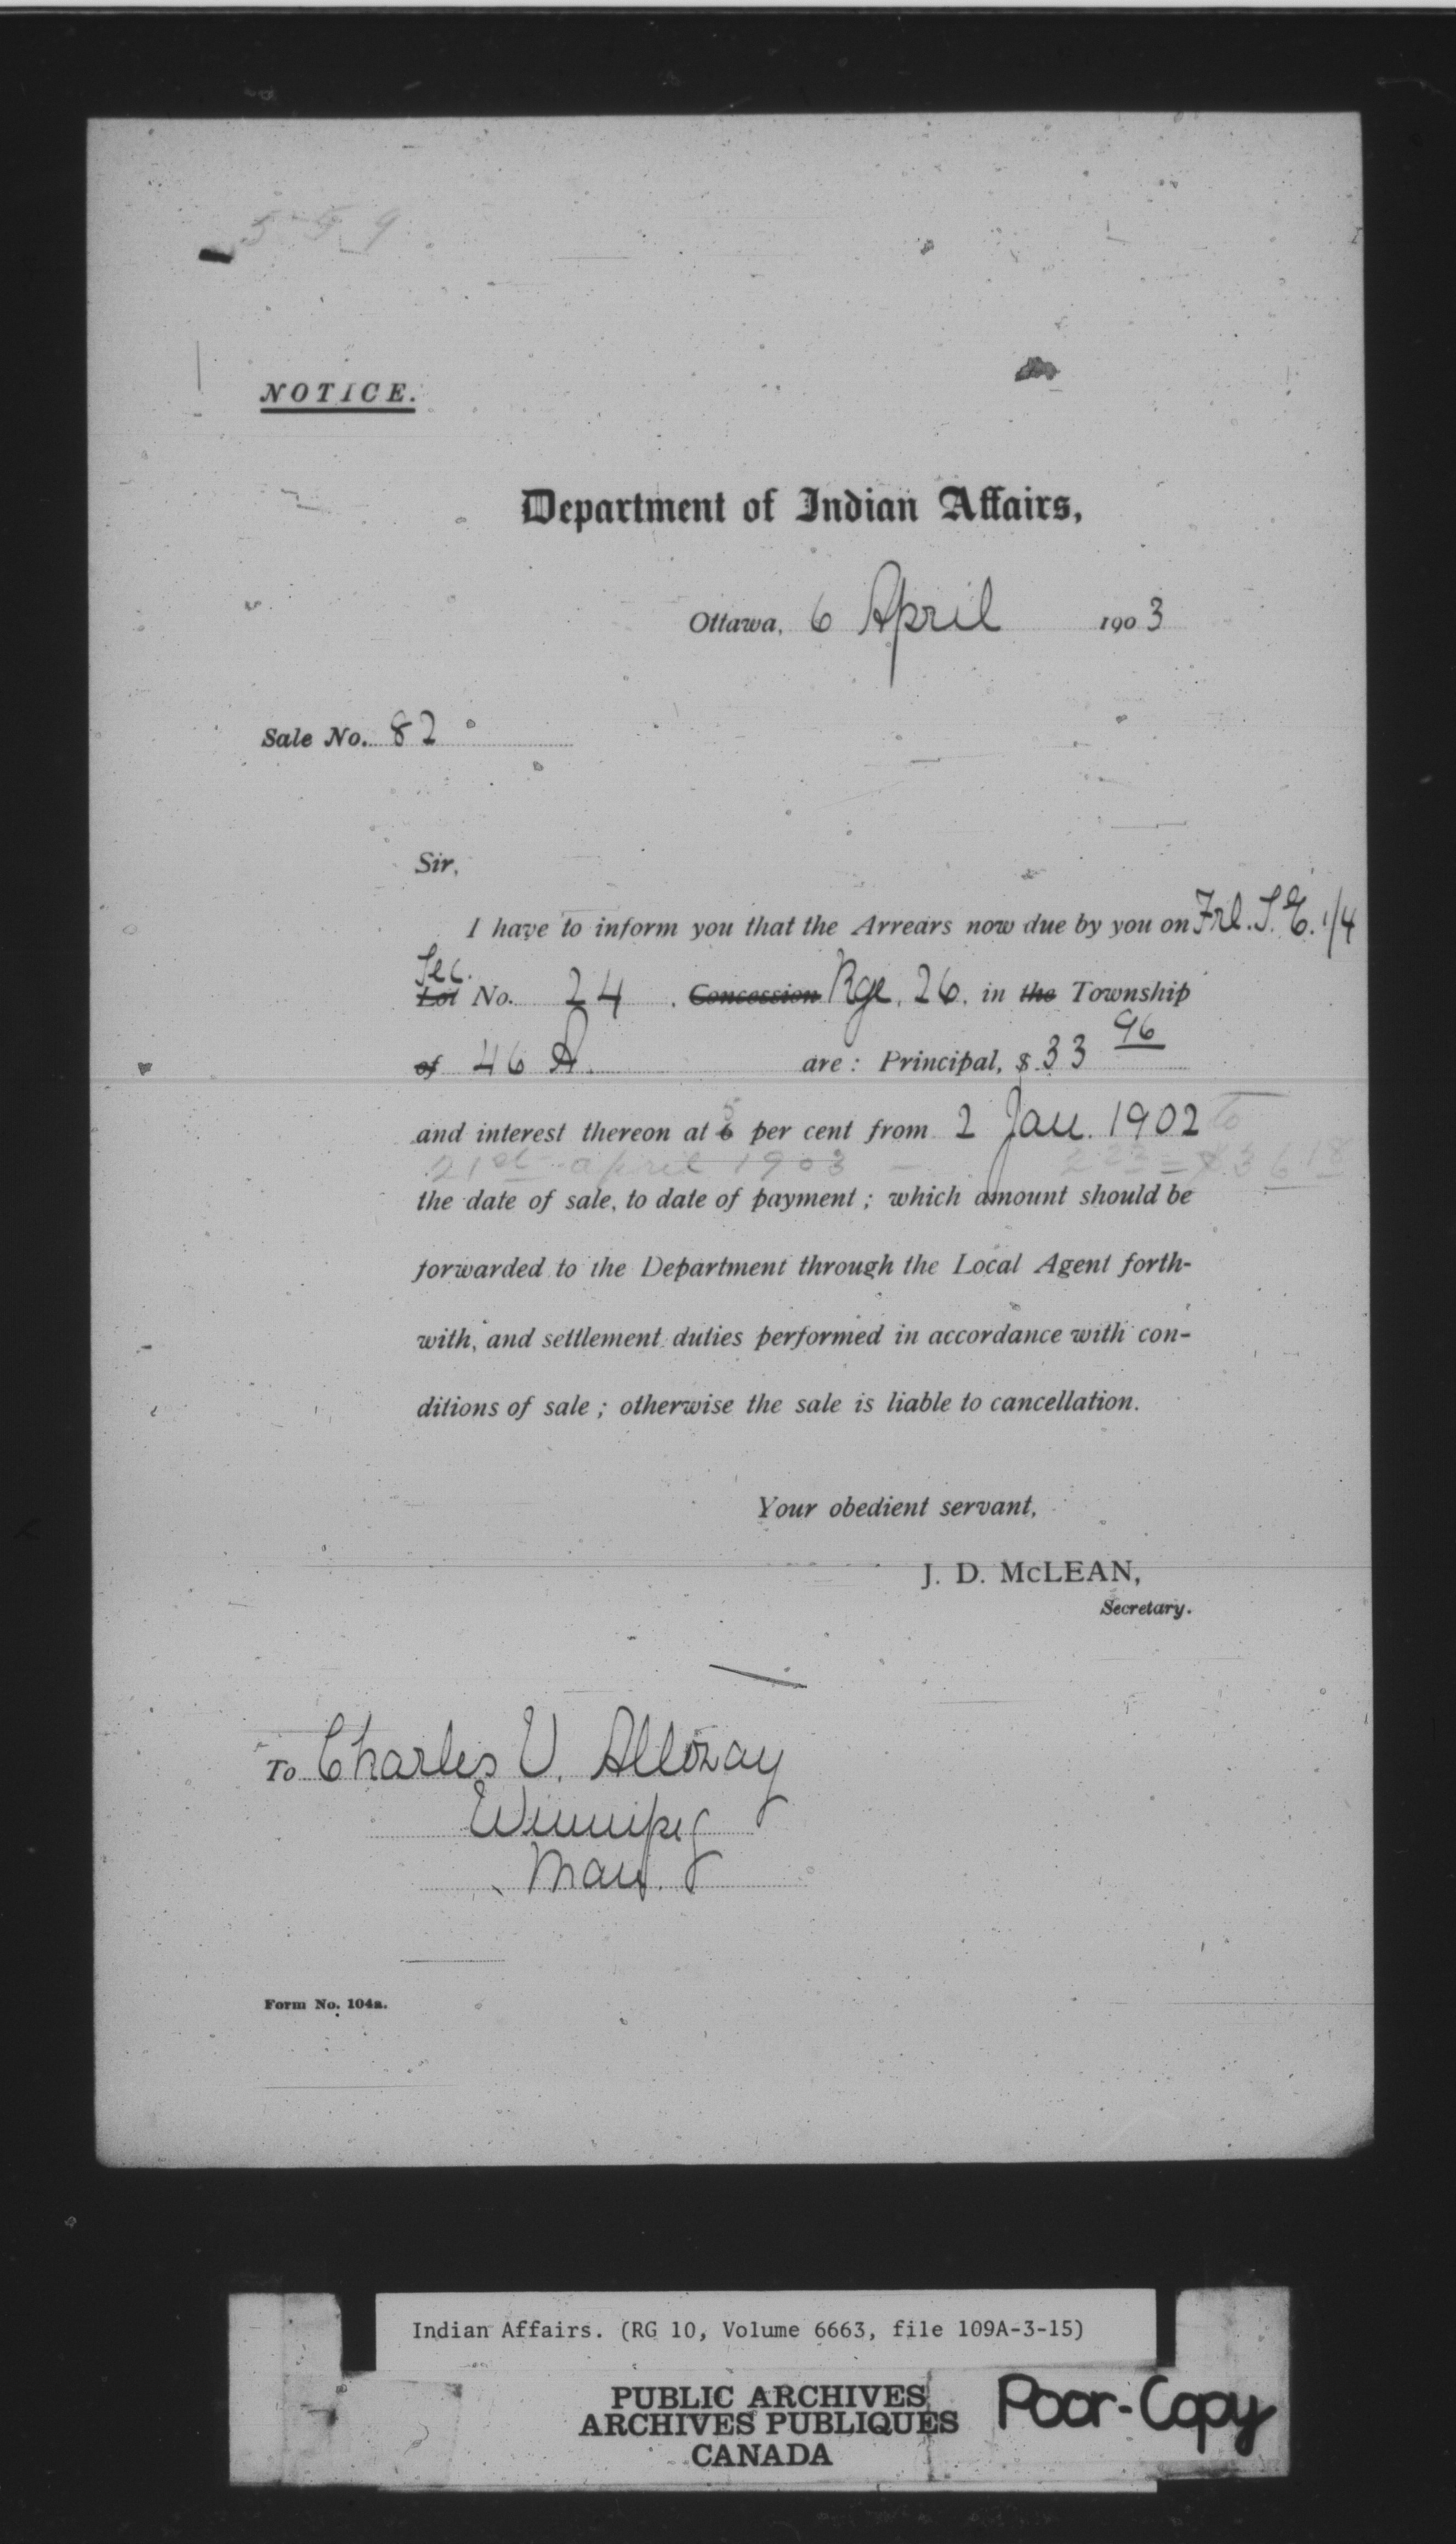 559
NOTICE.
Department of Indian Affairs,
Ottawa, 6 April 1903
Sale No. 82
Sir,
I have to inform you that the Arrears now due by you on Frl. S.E. 1/4
Sec.
Lot No. 24. Concession Rge. 26. in the Township
of 46 A. are: Principal, $ 33 96
5
and interest thereon at 6 per cent from 2 Jan. 1902 to
21st april 1903 — 2 22 = $36 18
the date of sale, to date of payment; which amount should be
forwarded to the Department through the Local Agent forth-
with, and settlement duties performed in accordance with con-
ditions of sale; otherwise the sale is liable to cancellation.
Your obedient servant,
J. D. McLEAN,
Secretary.
To Charles V. Alloway
Winnipeg
Man.
Form No. 104a.
Indian Affairs. (RG 10, Volume 6663, file 109A-3-15)
PUBLIC ARCHIVES
ARCHIVES PUBLIQUES
CANADA
Poor-Copy